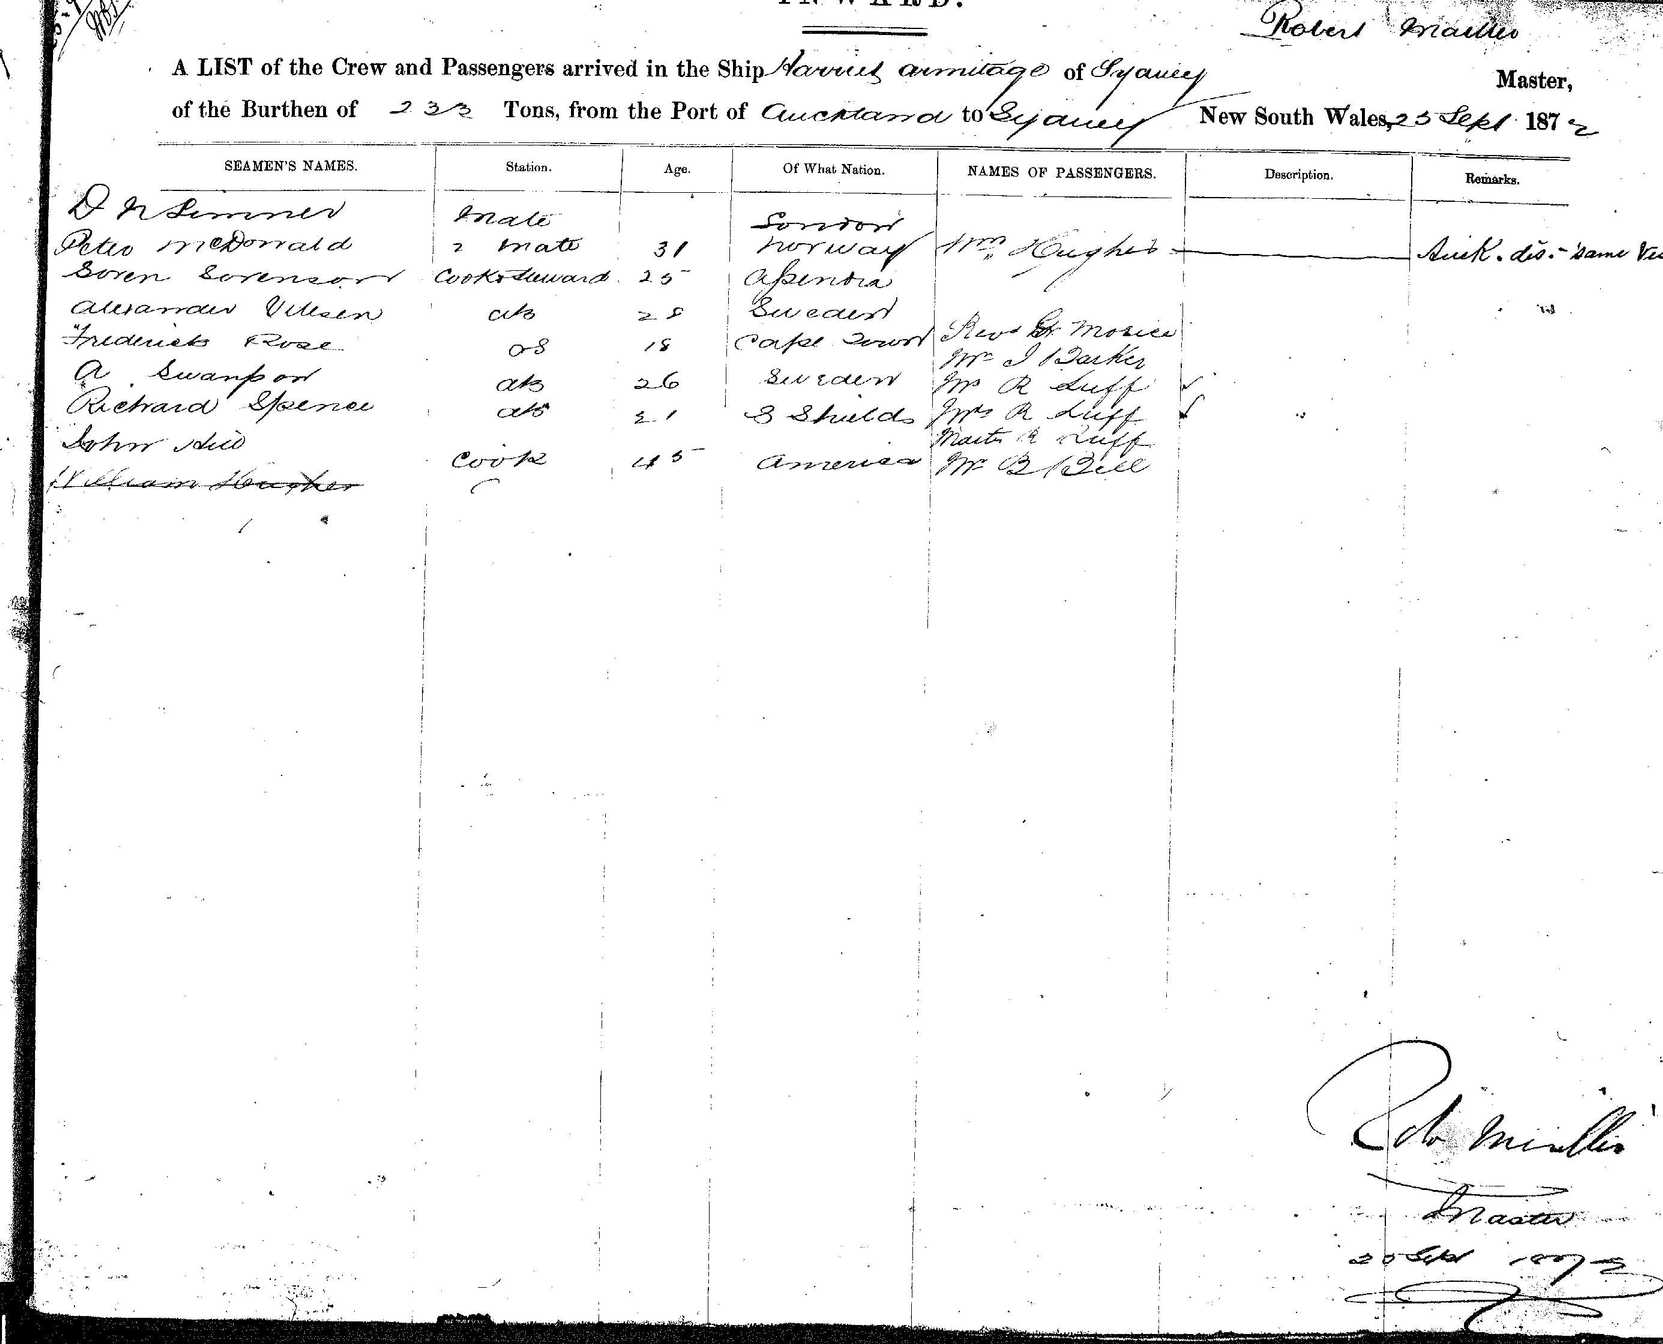 INWARD.
Robert
A LIST of the Crew and Passengers arrived in the Ship Harriet Armitage of Sydney Master,
of the Burthen of 233 Tons, from the Port of Auckland to Sydney New South Wales, 25 Sept 1872
SEAMEN'S NAMES. Station. Age. Of What Nation. NAMES OF PASSENGERS. Description. Remarks.
D N Mate London
Peter McDonald 2 Mate 31 Norway Wm Hughes Auck. dis. same
Soren Sorenson Cook & Steward 25 Apenrra
Alexander 28 Sweden
Frederick Rose OS 18 Cape Town Revd Morice
Mr J Barker
A Swanson AB 26 Sweden Mr R Luff
Richard Spence AB 21 S Shields Mrs R Luff
John Hill Master R Luff
Cook 45 America Mr B Bell
William Hughes
Master
25 Sept 1872